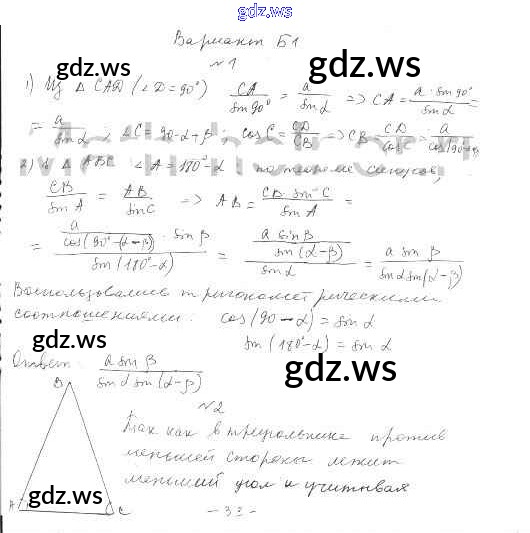 gdz.ws
Вариант Б1
№1
1) Из △ CAD (∠D=90°) CA/sin90° = a/sinα => CA = a·sin90°/sinα =
= a/sinα, ∠C = 90-α+β; cosC = CD/CB => CB = CD/cosC = a/cos(90-α+β)
2) △ ABC ∠A = 180°-α по теореме синусов,
CB/sinA = AB/sinC => AB = CB·sinC/sinA =
= a/cos(90°-(α-β)) · sinβ / sin(180°-α) = a sinβ/sin(α-β) / sinα = a sinβ/sinα sin(α-β)
Воспользовались тригонометрическими
соотношениями: cos(90-α) = sinα
sin(180°-α) = sinα
Ответ: a sinβ/sinα sin(α-β)
№2
B
Так как в треугольнике против
меньшей стороны лежит
меньший угол и учитывая
A C
- 33 -
gdz.ws
gdz.ws
gdz.ws
gdz.ws
gdz.ws
gdz.ws